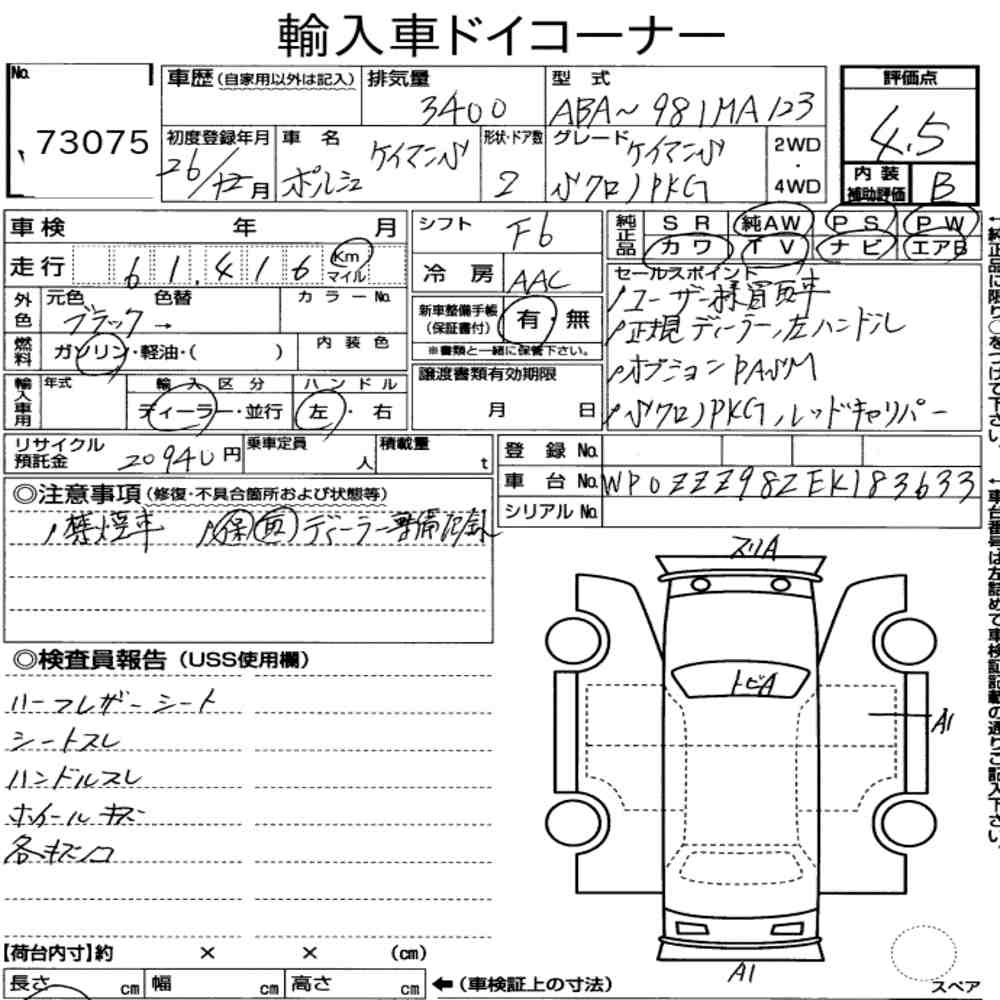 輸入車ドイコーナー
No. 73075
車歴 (自家用以外は記入) 排気量 3400 型式 ABA~981MA123
評価点 4.5
初度登録年月 26/12月 車名 ポルシェ ケイマンS 形状・ドア数 2 グレード ケイマンS スクロノPKG 2WD・4WD
内装補助評価 B
車検 年 月
シフト F6
純正品 SR 純AW PS PW
カワ TV ナビ エアB
走行 61,416 Km マイル
冷房 AAC
セールスポイント
ユーザー様買取車
正規ディーラー,左ハンドル
オプションPASM
スクロノPKG,レッドキャリパー
外色 元色 ブラック→ 色替 カラーNo.
新車整備手帳(保証書付) 有・無
※書類と一緒に保管下さい。
燃料 ガソリン・軽油・( ) 内装色
譲渡書類有効期限 月 日
輸入車用 年式 輸入区分 ディーラー・並行 ハンドル 左・右
リサイクル預託金 20940円 乗車定員 人 積載量 t
登録No.
車台No. WP0ZZZ98ZEK183633
シリアルNo.
◎注意事項 (修復・不具合箇所および状態等)
禁煙車 保取ディーラー整備記録
◎検査員報告 (USS使用欄)
ハーフレザーシート
シートスレ
ハンドルスレ
ホイールキズ
各キズ凹
スリA
トビA
A1
A1
スペア
【荷台内寸】約 × × (cm)
長さ cm 幅 cm 高さ cm ←(車検証上の寸法)
←純正品に限り○をつけて下さい。
←車台番号は左詰めで車検証記載の通りご記入下さい。